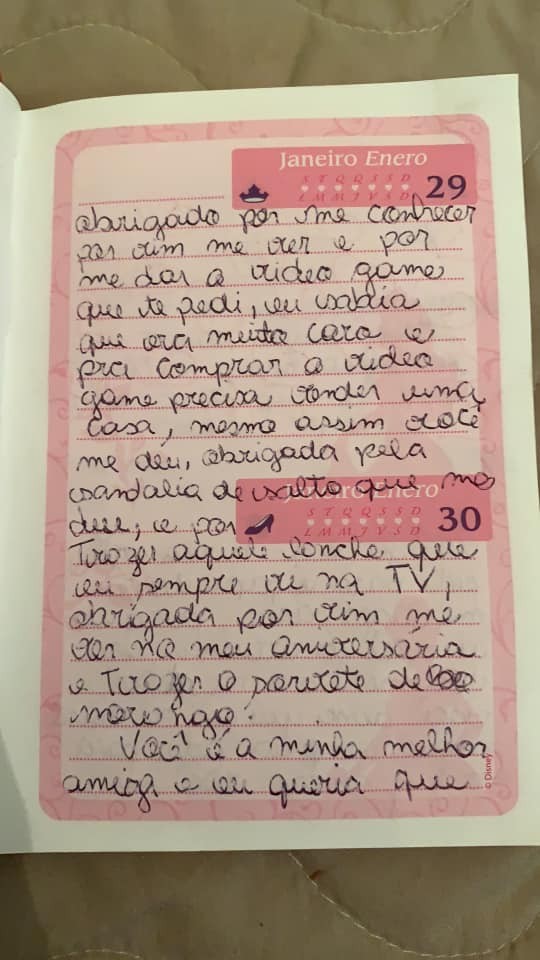 Janeiro Enero
S T Q Q S S D
29
L M M J V S D
obrigado por me conhecer
por vim me ver e por
me dar o video game
que te pedi, eu sabia
que era muito caro e
pra comprar o video
game precisa vender uma
casa, mesmo assim você
me deu, obrigada pela
sandalia de salto que me
Janeiro Enero
S T Q Q S S D
30
L M M J V S D
deu, e por
Trozer aquele lonche que
eu sempre vi na TV,
obrigada por vim me
ver no meu aniversária
e Trozer o sorvete de
morongo.
Você é a minha melhor
amiga e eu queria que
© Disney